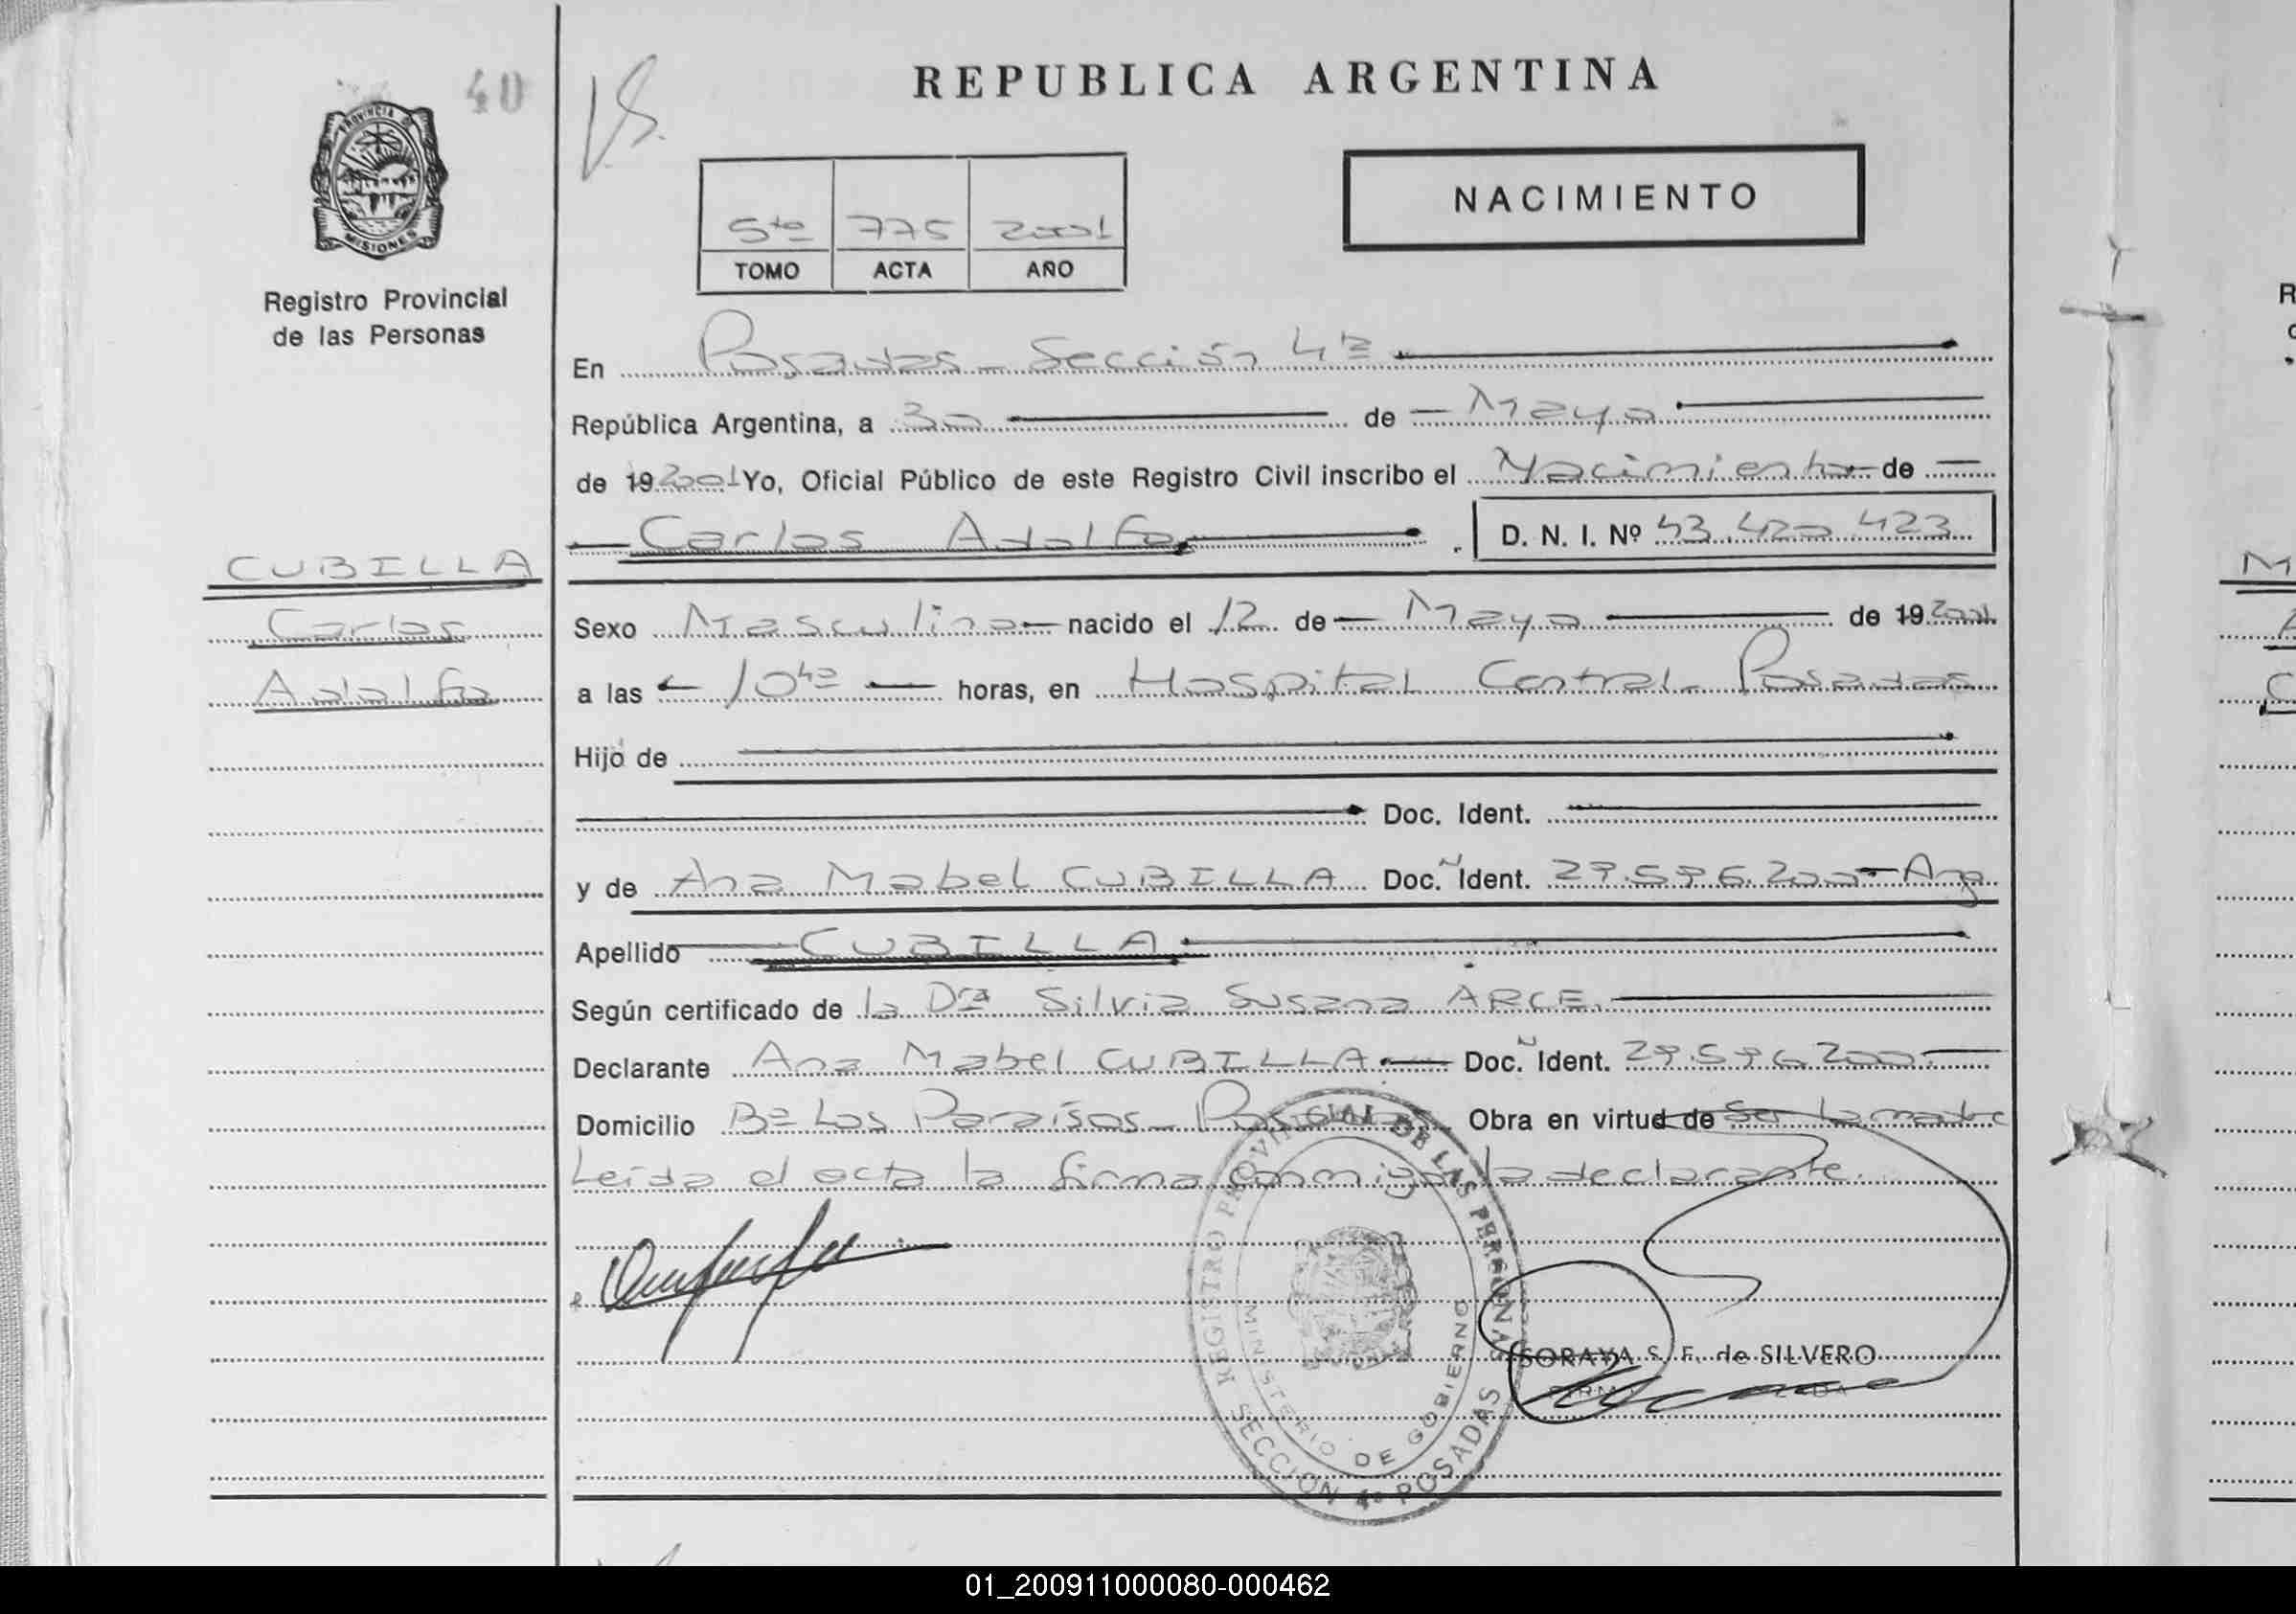 40
REPUBLICA ARGENTINA
PROVINCIA DE
MISIONES
Registro Provincial
de las Personas
NACIMIENTO
5to 775 2001
TOMO ACTA AÑO
En Posadas - Sección 4ta
República Argentina, a 30 de Mayo
de 19 2001 Yo, Oficial Público de este Registro Civil inscribo el Nacimiento de
Carlos Adolfo D. N. I. Nº 43.420.423
CUBILLA
Carlos
Adolfo
Sexo Masculino nacido el 12 de Mayo de 19 2001
a las 10 horas, en Hospital Central Posadas
Hijo de
Doc. Ident.
y de Ana Mabel CUBILLA Doc. Ident. 29.596.200 - Arg
Apellido CUBILLA
Según certificado de la Dra Silvia Susana ARCE.
Declarante Ana Mabel CUBILLA Doc. Ident. 29.596.200
Domicilio Bº Los Paraísos - Posadas Obra en virtud de ser la madre
Leida el acta la firma conmigo la declarante.
REGISTRO PROVINCIAL DE LAS PERSONAS
MINISTERIO DE GOBIERNO
SECCION 4ª POSADAS
SORAYA S. F. de SILVERO
01_200911000080-000462